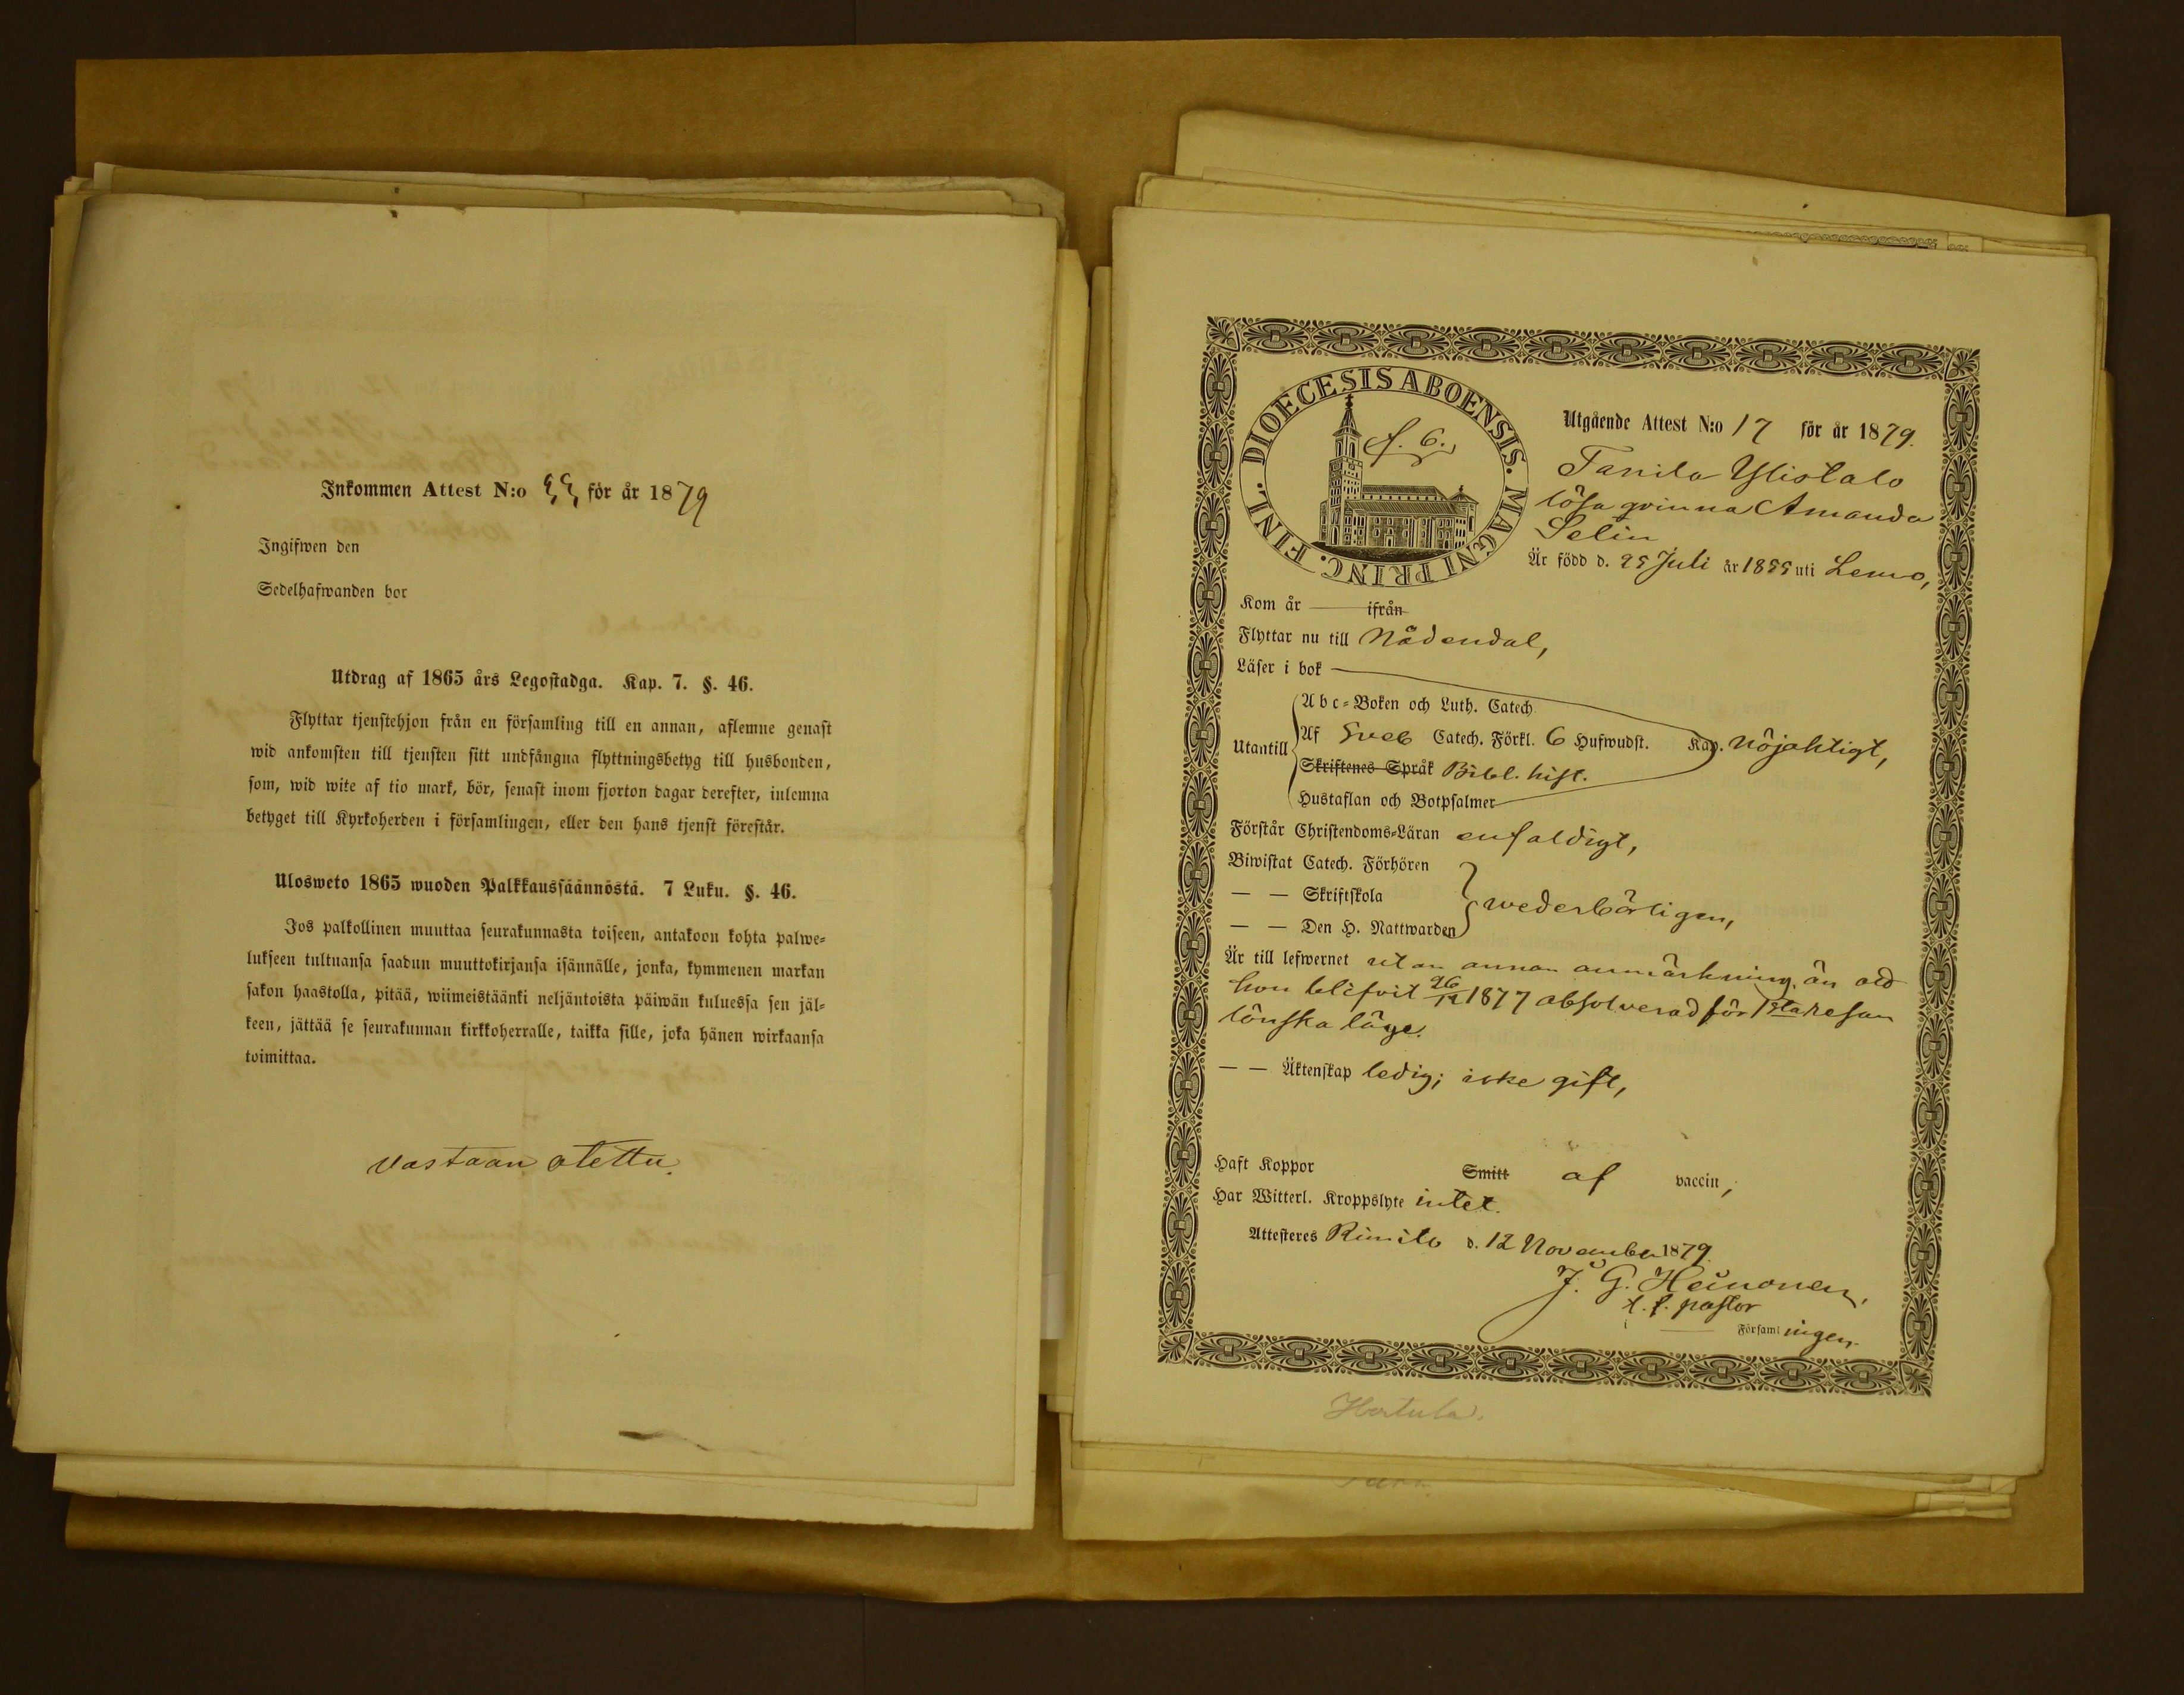 Inkommen Attest N:o 55 för år 1879
Ingifwen den
Sedelhafwanden bor
Utdrag af 1865 års Legostadga. Kap. 7. §. 46.
Flyttar tjenstehjon från en församling till en annan, aflemne genast
wid ankomsten till tjensten sitt undfångna flyttningsbetyg till husbonden,
som, wid wite af tio mark, bör, senast inom fjorton dagar derefter, inlemna
betyget till Kyrkoherden i församlingen, eller den hans tjenst förestår.
Ulosweto 1865 wuoden Palkkaussäännöstä. 7 Luku. §. 46.
Jos palkollinen muuttaa seurakunnasta toiseen, antakoon kohta palwe-
lukseen tultuansa saadun muuttokirjansa isännälle, jonka, kymmenen markan
sakon haastolla, pitää, wiimeistäänki neljäntoista päiwän kuluessa sen jäl-
keen, jättää se seurakunnan kirkkoherralle, taikka sille, joka hänen wirkaansa
toimittaa.
Vastaan otettu.
DIOECESIS ABOENSIS. MAGNI PRINC. FINL.
f. 6.
Utgående Attest N:o 17 för år 1879.
Tanila Ylistalo
lösa qvinna Amanda
Selin
Är född d. 25 Juli år 1855 uti Lemo,
Kom år — ifrån
Flyttar nu till Nådendal,
Läser i bok
Abc-Boken och Luth. Catech.
Utantill Af Sveb Catech. Förkl. 6 Hufwudst. Kap. nöjaktigt,
Skriftenes Språk Bibl. hist.
Hustaflan och Botpsalmer
Förstår Christendoms-Läran enfaldigt,
Biwistat Catech. Förhören
— — Skriftskola wederbörligen,
— — Den H. Nattwarden
Är till lefwernet utan annan anmärkning, än att
hon blifvit 26/12 1877 absolverad för 1sta resan
lönska läge.
— — Äktenskap ledig; icke gift,
Haft Koppor Smitt af vaccin,
Har Witterl. Kroppslyte intet.
Attesteres Rimito d. 12 November 1879.
J. G. Heinonen,
t. f. pastor
i — Församlingen.
Hertula.